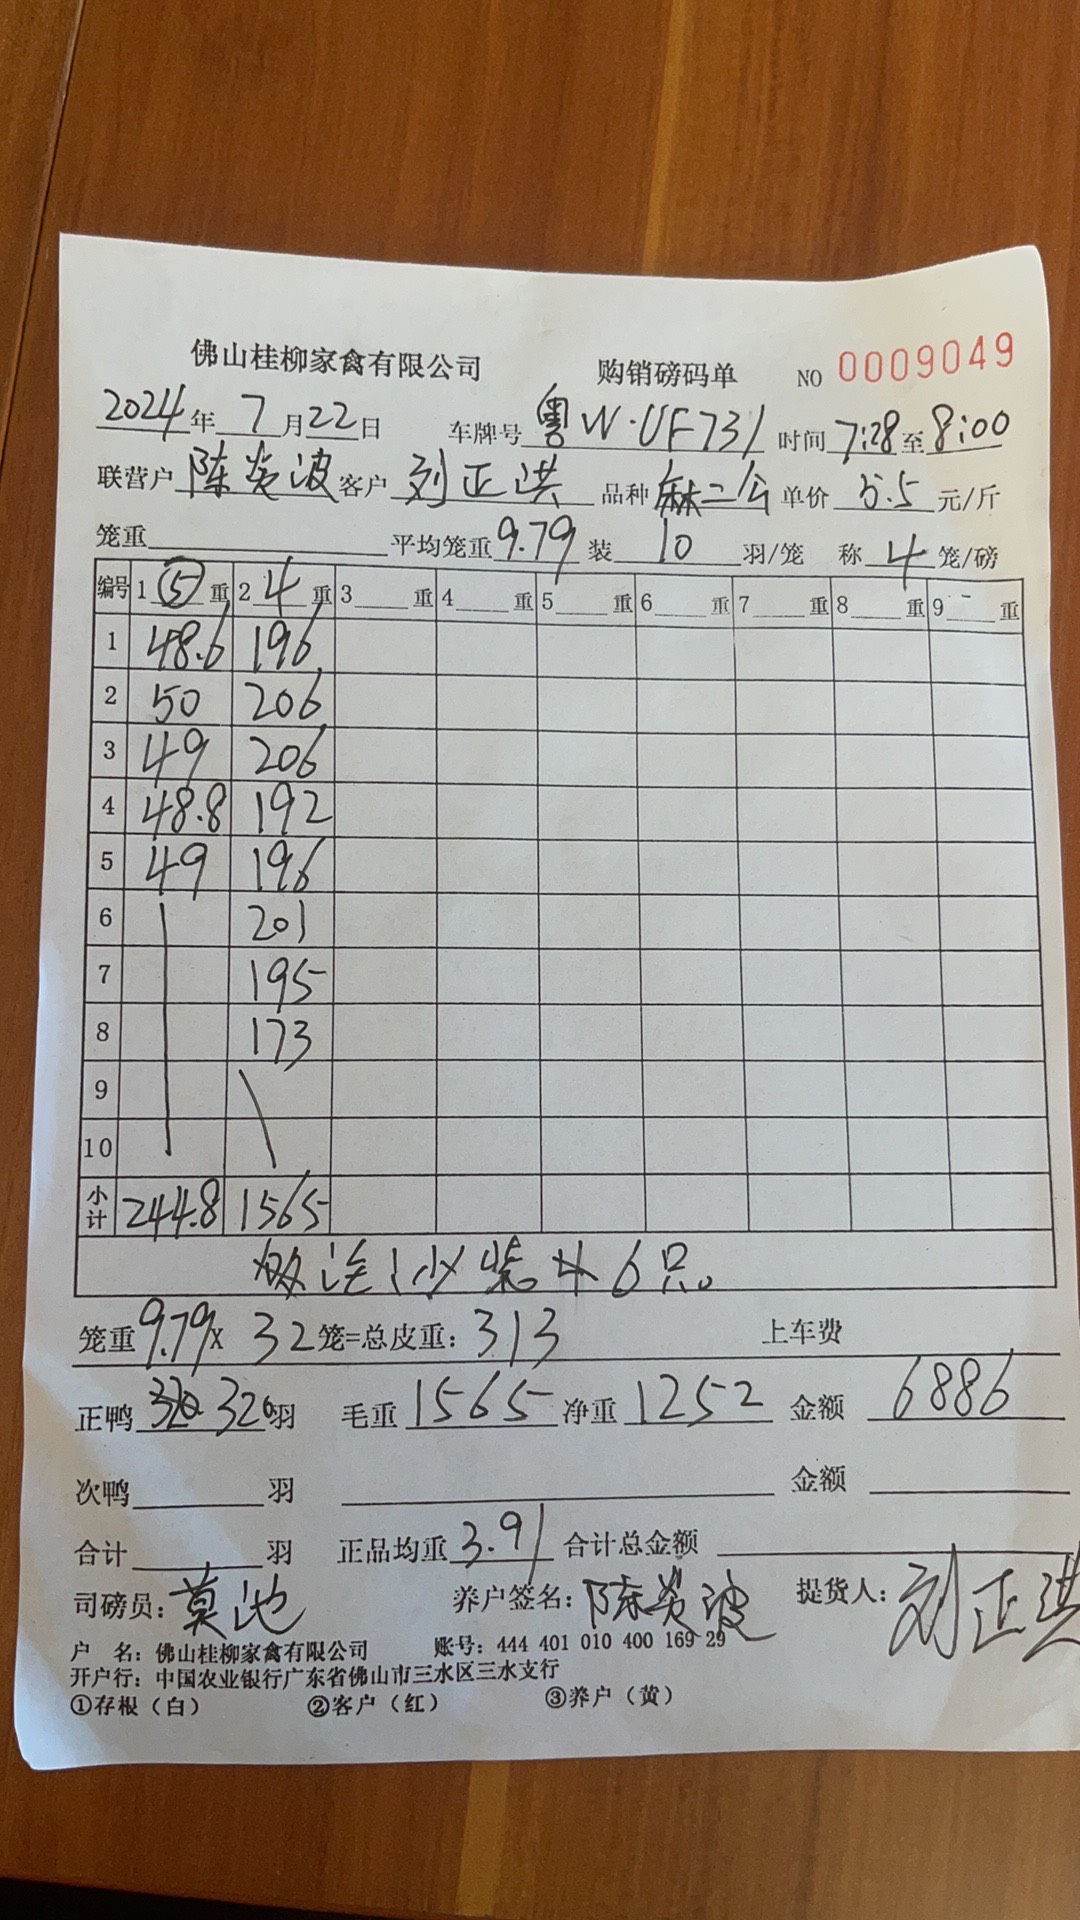 佛山桂柳家禽有限公司 购销磅码单 NO 0009049
2024年7月22日 车牌号 粤W·UF731 时间 7:28至8:00
联营户 陈炎波 客户 刘正洪 品种 麻二公 单价 5.5 元/斤
笼重 平均笼重 9.79 装 10 羽/笼 称 4 笼/磅
编号 1 ⑤ 重 2 4 重 3 重 4 重 5 重 6 重 7 重 8 重 9 重
1 48.6 196
2 50 206
3 49 206
4 48.8 192
5 49 196
6 201
7 195
8 173
9
10
小计 244.8 1565
少装 6只。
笼重 9.79 x 32 笼=总皮重: 313 上车费
正鸭 320 羽 毛重 1565 净重 1252 金额 6886
次鸭 羽 金额
合计 羽 正品均重 3.91 合计总金额
司磅员: 莫池 养户签名: 陈炎波 提货人: 刘正洪
户 名: 佛山桂柳家禽有限公司 账号: 444 401 010 400 169 29
开户行: 中国农业银行广东省佛山市三水区三水支行
①存根（白） ②客户（红） ③养户（黄）